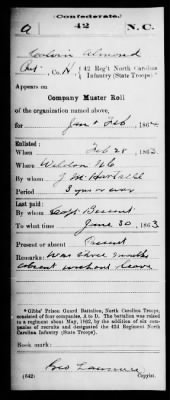 (Confederate.)
a 42 N.C.
Almond
Pvt, Co. H, 42 Reg't North Carolina
Infantry (State Troops).*
Appears on
Company Muster Roll
of the organization named above,
for Jan & Feb, 1864
Enlisted:
When Feb 28, 1862
Where Weldon N.C.
By whom J. M. Hartsell
Period 3 years or war
Last paid:
By whom Capt
To what time June 30, 1863
Present or absent Present
Remarks: Was three months
absent without leave
* Gibbs' Prison Guard Battalion, North Carolina Troops,
consisted of four companies, A to D. The battalion was raised
to a regiment about May, 1862, by the addition of six companies
of recruits and designated the 42d Regiment North
Carolina Infantry (State Troops).
Book mark:
Geo Lawrence
(642) Copyist.